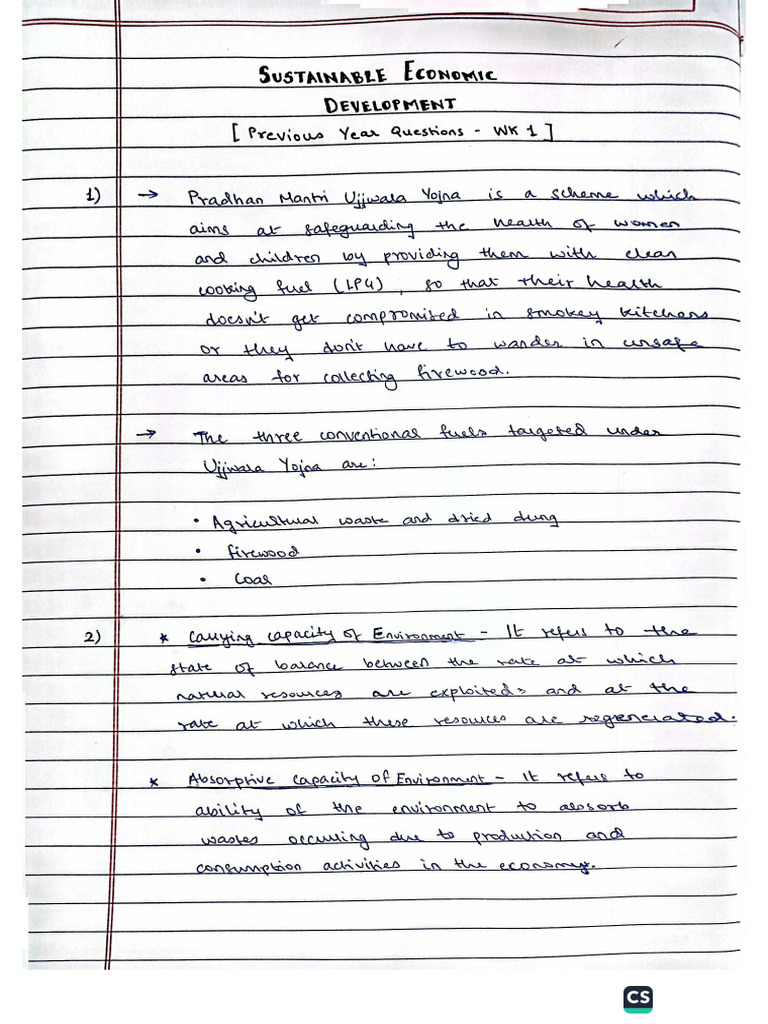 SUSTAINABLE ECONOMIC
DEVELOPMENT
[ Previous Year Questions - WK 1 ]
1) → Pradhan Mantri Ujjwala Yojna is a scheme which
aims at safeguarding the health of women
and children by providing them with clean
cooking fuel (LPG), so that their health
doesn't get compromised in smokey kitchens
or they don't have to wander in unsafe
areas for collecting firewood.
→ The three conventional fuels targeted under
Ujjwala Yojna are:
• Agricultural waste and dried dung
• firewood
• Coal
2) * Carrying capacity of Environment - It refers to the
state of balance between the rate at which
natural resources are exploited, and at the
rate at which these resources are regenerated.
* Absorptive capacity of Environment - It refers to
ability of the environment to absorb
wastes occurring due to production and
consumption activities in the economy.
CS